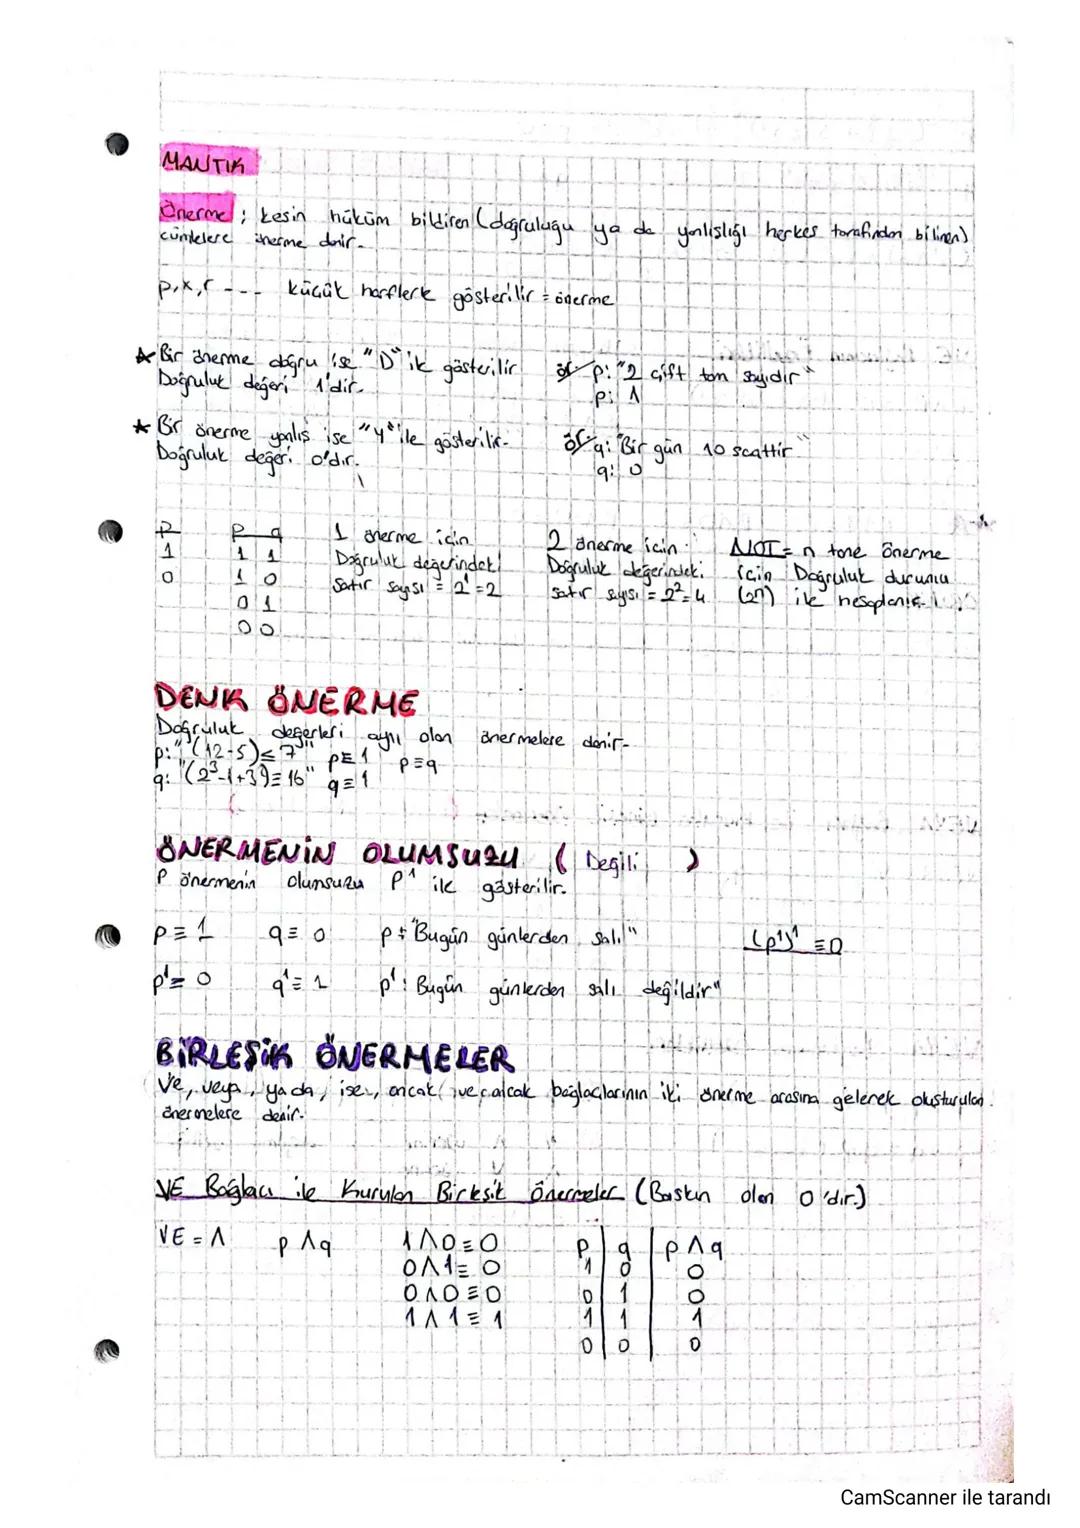 MANTIK
Önerme ; kesin hüküm bildiren (doğruluğu ya da yanlışlığı herkes tarafından bilinen)
cümlelere önerme denir.
p,x,r --- küçük harflerle gösterilir = önerme
★ Bir önerme doğru ise "D" ile gösterilir
Doğruluk değeri 1'dir.
ör/ p: "2 çift tam sayıdır"
p: 1
★ Bir önerme yanlış ise "Y" ile gösterilir.
Doğruluk değeri 0'dır.
ör/ q: "Bir gün 10 saattir"
q: 0
p
1
0
p q
1 1
1 0
0 1
0 0
1 önerme için
Doğruluk değerindeki
satır sayısı = 2¹=2
2 önerme için
Doğruluk değerindeki
satır sayısı = 2²=4
NOT= n tane önerme
için Doğruluk durumu
(2n) ile hesaplanır.
DENK ÖNERME
Doğruluk değerleri aynı olan önermelere denir.
p: "(12-5)≤7" p≡1 p≡q
q: "(2³-1+3²)=16" q≡1
ÖNERMENİN OLUMSUZU ( Değili )
P önermenin olumsuzu P' ile gösterilir.
p≡1 q≡0 p: "Bugün günlerden salı" (p')' ≡0
p'≡0 q'≡1 p': Bugün günlerden salı değildir"
BİRLEŞİK ÖNERMELER
Ve, veya, ya da, ise, ancak ve ancak bağlaçlarının iki önerme arasına gelerek oluşturulan
önermelere denir.
VE Bağlacı ile Kurulan Birleşik Önermeler (Baskın olan 0'dır.)
VE = Λ p Λ q
1Λ0≡0
0Λ1≡0
0Λ0≡0
1Λ1≡1
p q pΛq
1 0 0
0 1 0
1 1 1
0 0 0
CamScanner ile tarandı